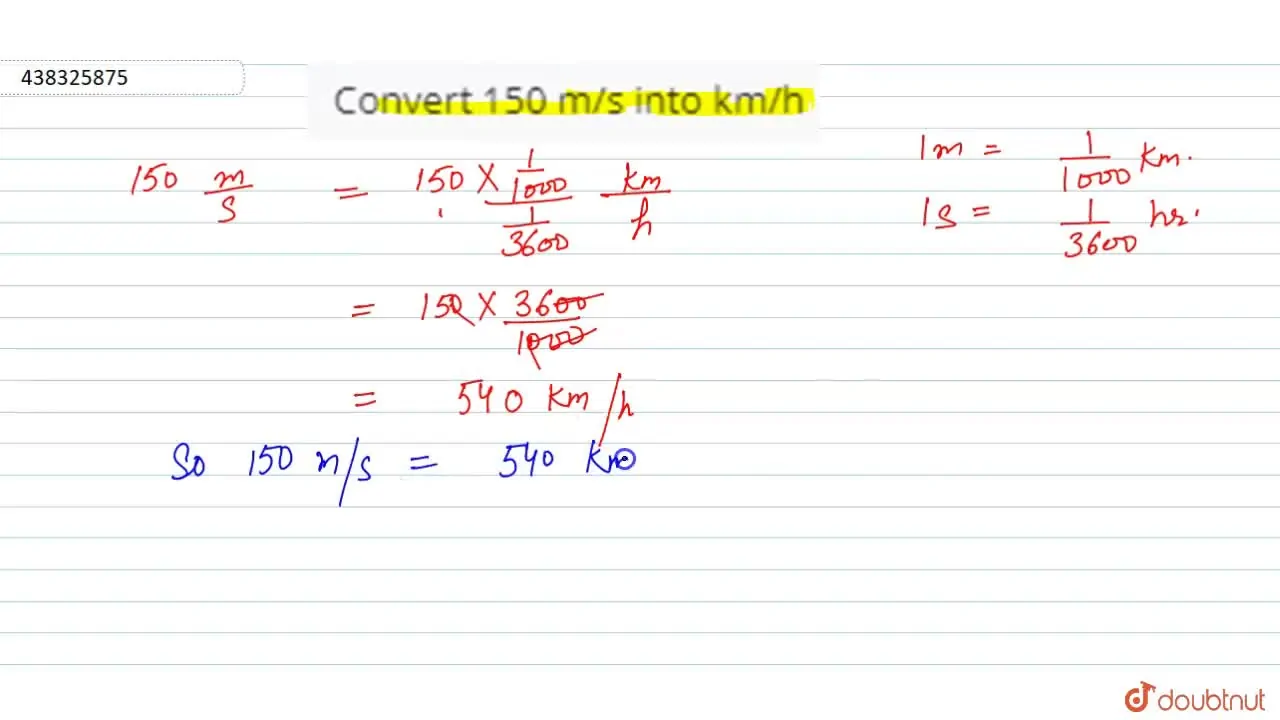 438325875
Convert 150 m/s into km/h
150 m/s = 150 × (1/1000)/(1/3600) km/h
1m = 1/1000 Km.
1s = 1/3600 hr.
= 150 × 3600/1000
= 540 Km/h
So 150 m/s = 540 Km
doubtnut